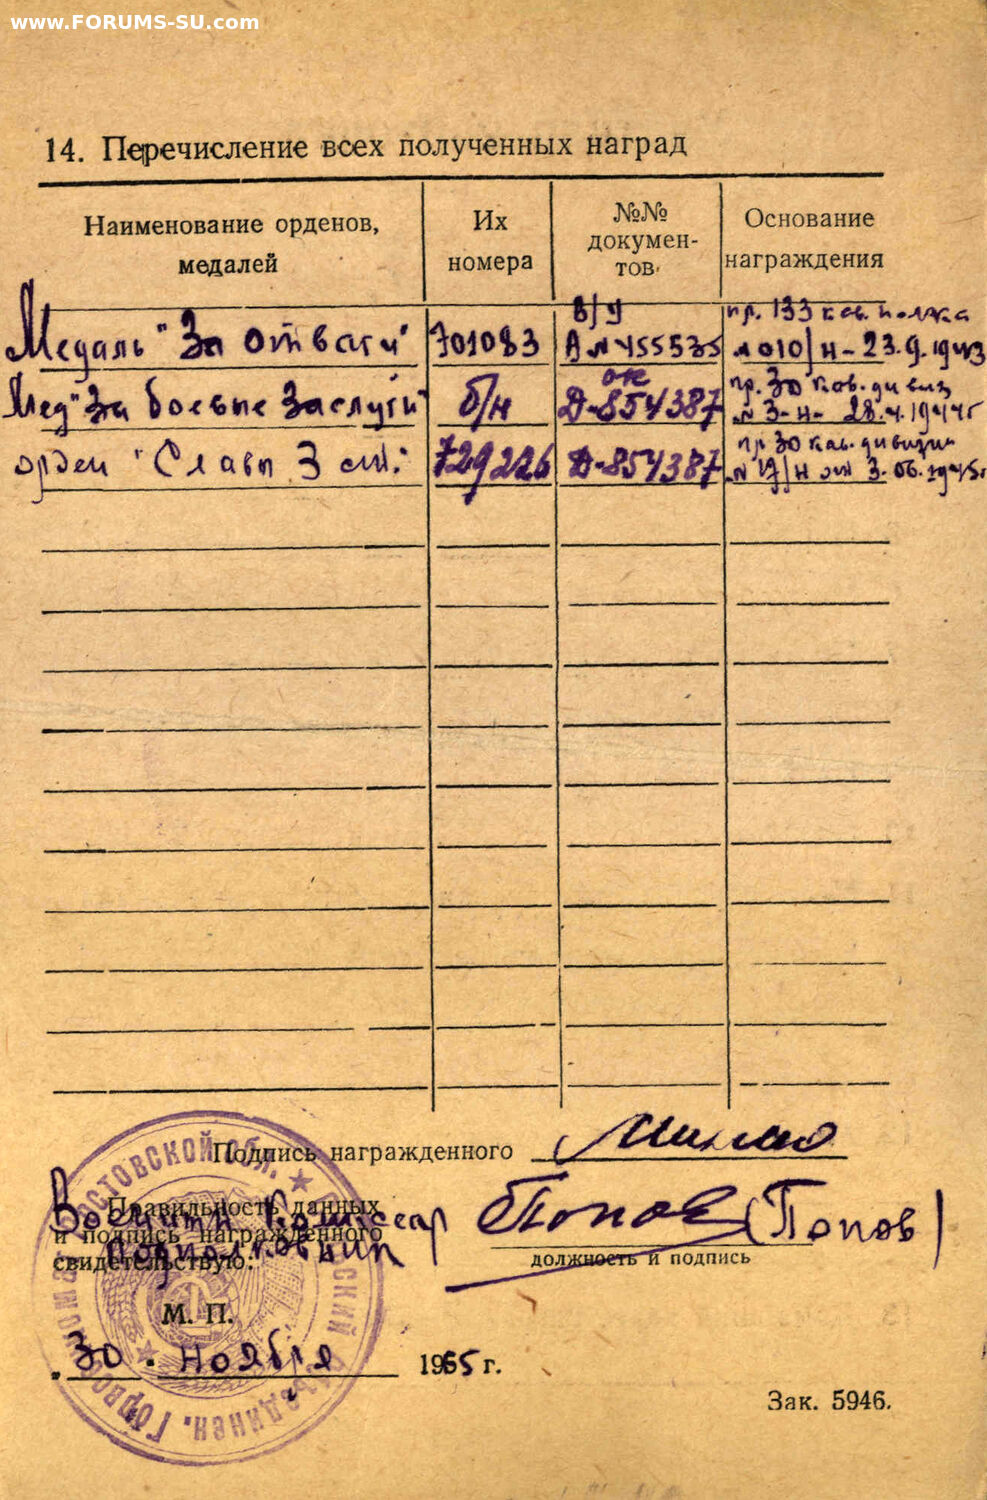 www.FORUMS-SU.com
14. Перечисление всех полученных наград
Наименование орденов, медалей
Их номера
№№ документов
Основание награждения
Медаль "За отвагу" 701083 в/у А № 455535 пр. 133 кав. полка № 010/н - 23.9.1943
Мед "За боевые заслуги" б/н ок Д-854387 пр. 30 кав. дивиз № 3-н- 28.4.1944г
орден "Славы 3 ст." 729226 Д-854387 пр. 30 кав. дивизии № 17/н от 3.06.1945г
Подпись награжденного
Правильность данных
и подпись награжденного
свидетельствую:
Военный Комиссар
подполковник
Попов (Попов)
должность и подпись
М. П.
30 ноября 1965 г.
Зак. 5946.
Ростовской обл.
Горвоенкомат